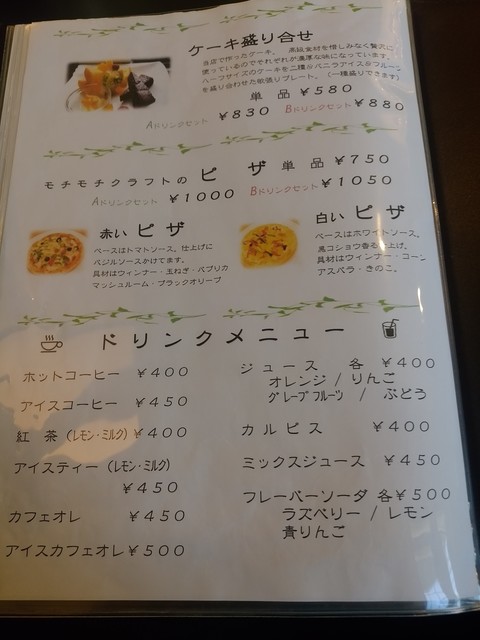 ケーキ盛り合せ
当店で作ったケーキ。 高級食材を惜しみなく贅沢に
使っているのでそれぞれが濃厚な味になっています。
ハーフサイズのケーキを二種&バニラアイス&フルーツ
を盛り合わせた欲張りプレート。(一種盛りできます)
単品 ¥580
Aドリンクセット ¥830 Bドリンクセット ¥880
モチモチクラフトの ピザ 単品 ¥750
Aドリンクセット ¥1000 Bドリンクセット ¥1050
赤い ピザ
ベースはトマトソース。仕上げに
バジルソースかけてます。
具材はウィンナー・玉ねぎ・パプリカ
マッシュルーム・ブラックオリーブ
白い ピザ
ベースはホワイトソース。
黒コショウ香る仕上げ。
具材はウィンナー・コーン
アスパラ・きのこ。
ドリンクメニュー
ホットコーヒー ¥400
アイスコーヒー ¥450
紅 茶 (レモン・ミルク) ¥400
アイスティー (レモン・ミルク)
¥450
カフェオレ ¥450
アイスカフェオレ ¥500
ジュース 各 ¥400
オレンジ / りんご
グレープフルーツ / ぶどう
カルピス ¥400
ミックスジュース ¥450
フレーバーソーダ 各¥500
ラズベリー / レモン
青りんご